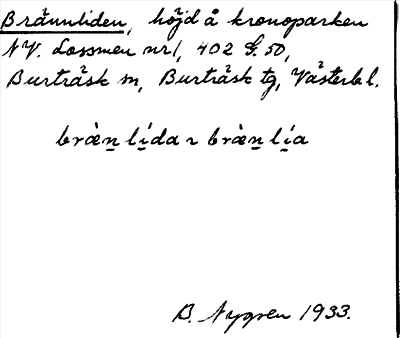 Brännliden, höjd å kronoparken
NV. Lossmen nr 1, 402 G. 50,
Burträsk sn, Burträsk tg, Västerb l.
bræ̀n lída ~ bræ̀n lía
B. Nygren 1933.